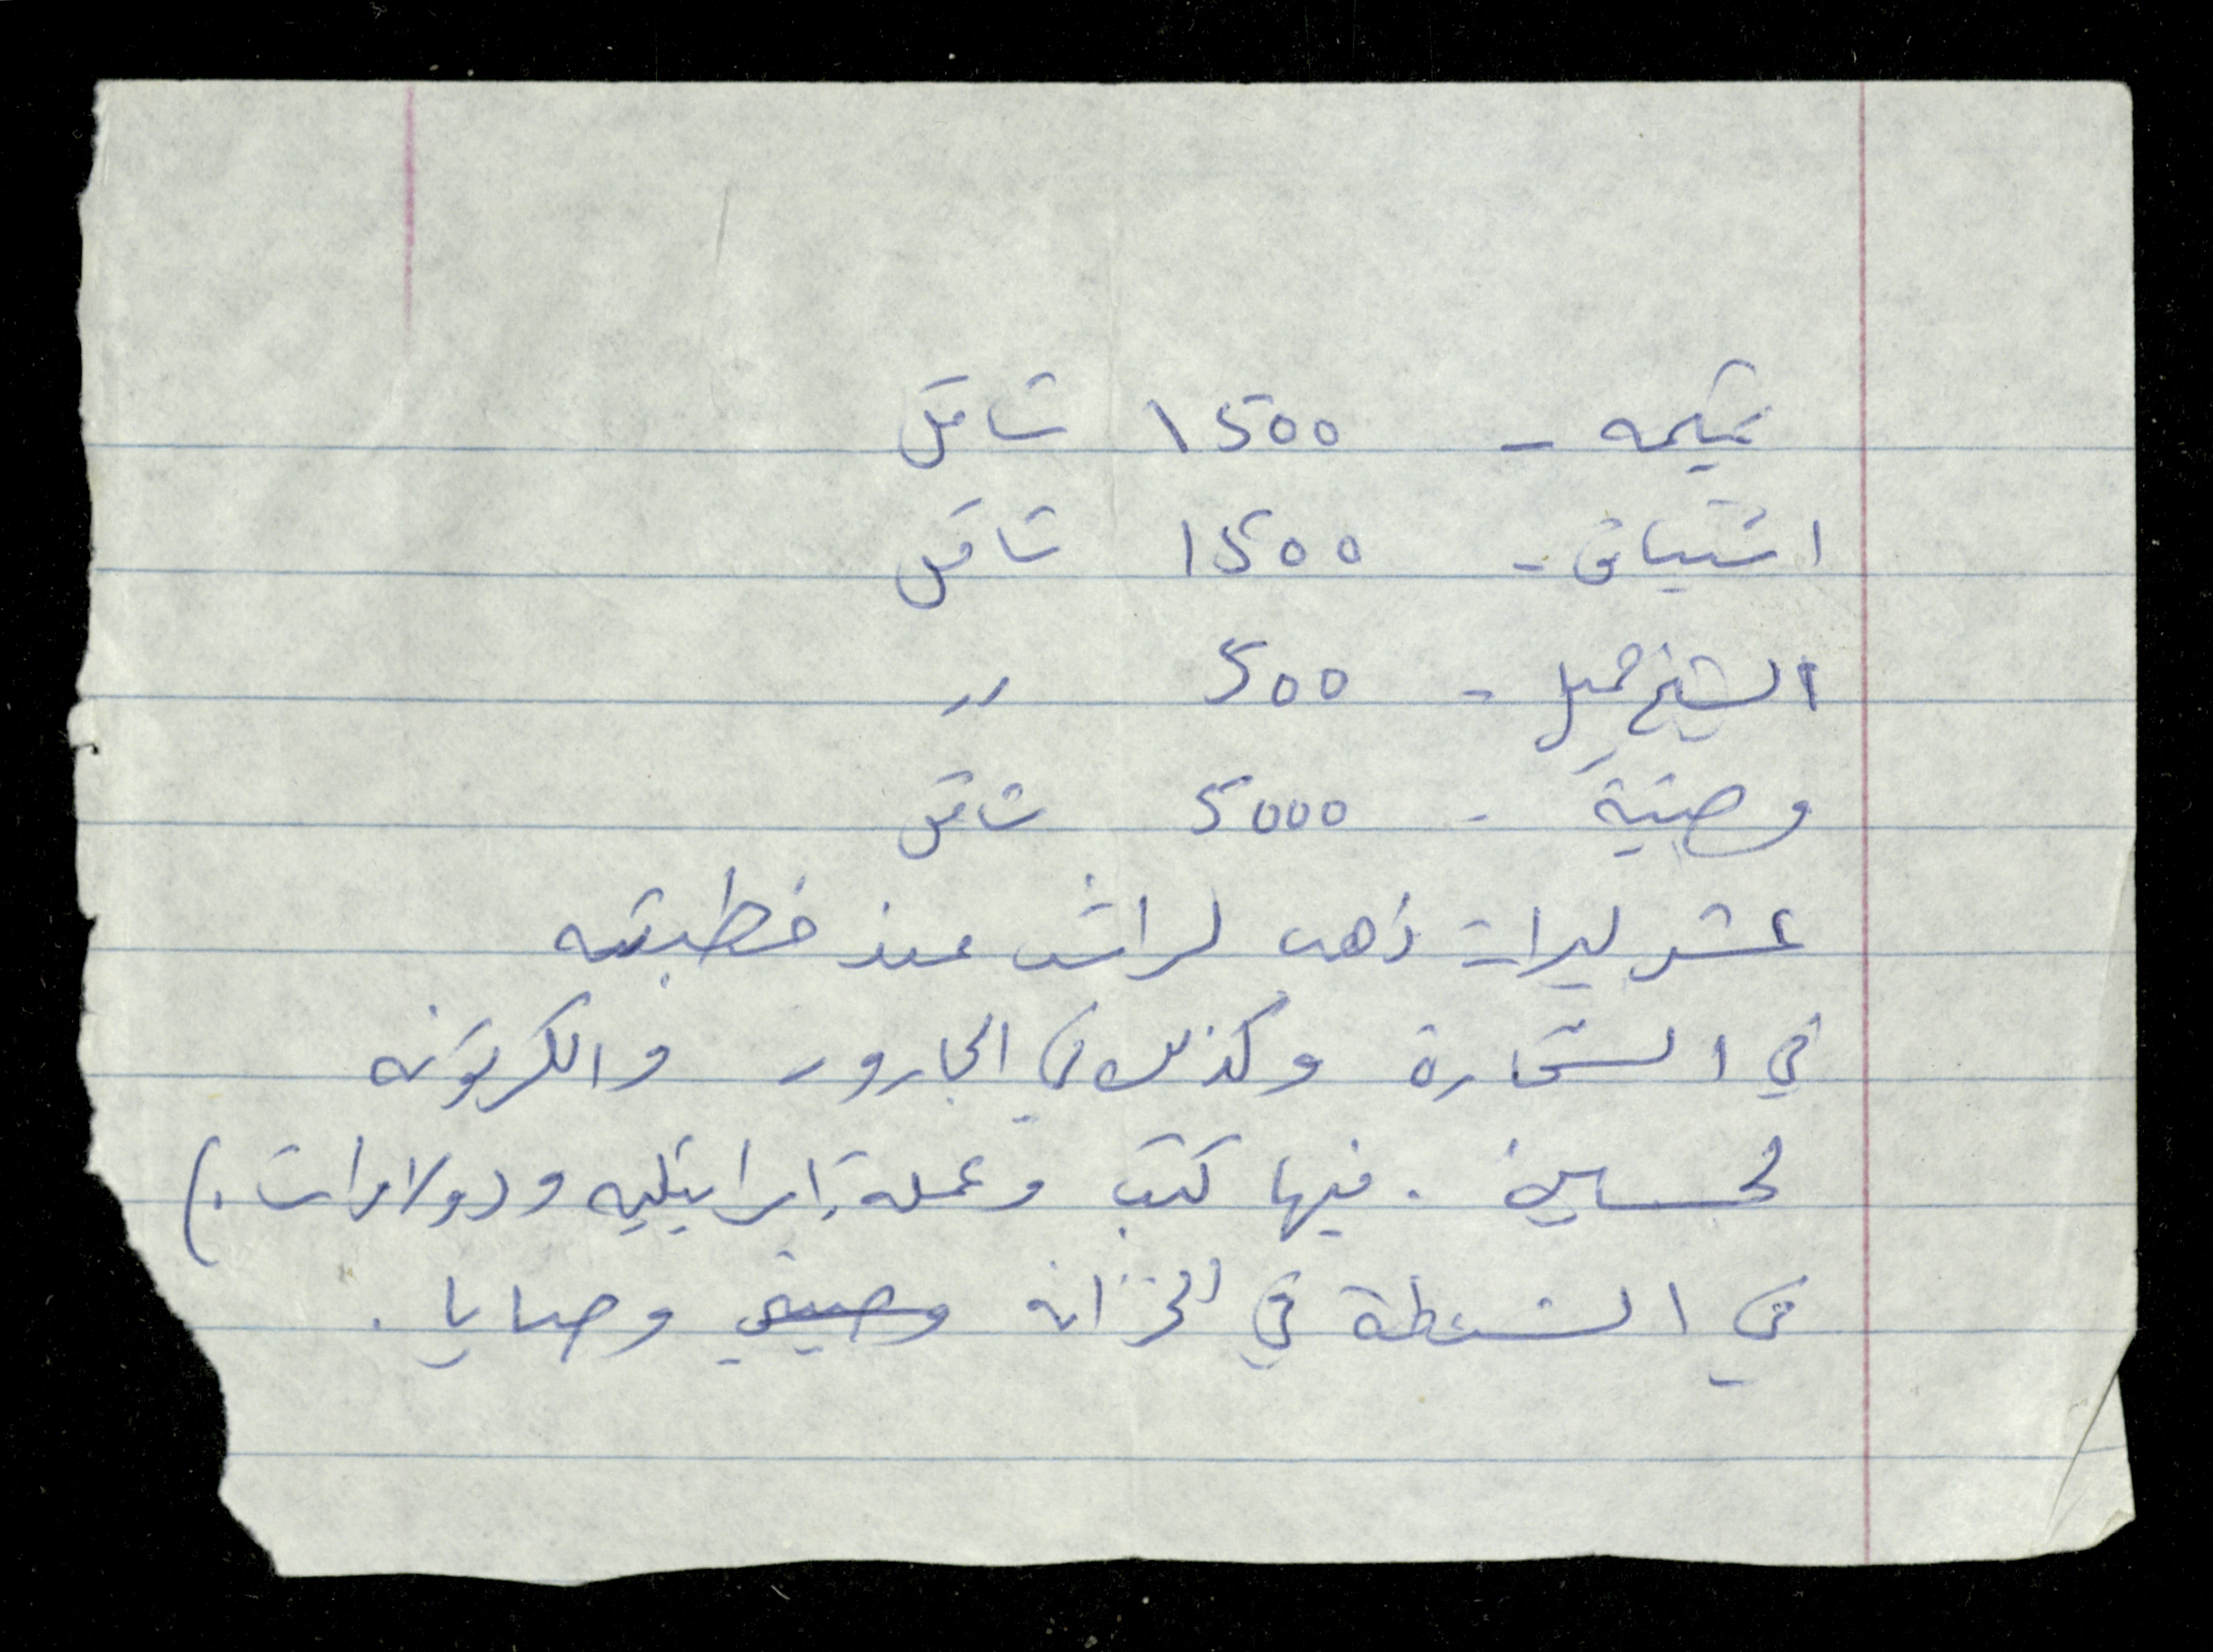 - 1500 شاقل
اشتياق - 1500 شاقل
الشيخ جميل - 500 //
وصية - 5000 شاقل
عشر ليرات ذهب لراشد عند خطبته
في السحارة وكذلك في الجارور والكرتونه
لحسين . فيها كتب وعملة اسرائيليه ودولارات . )
في الشنطة في الخزانه وصيتي وصايا .